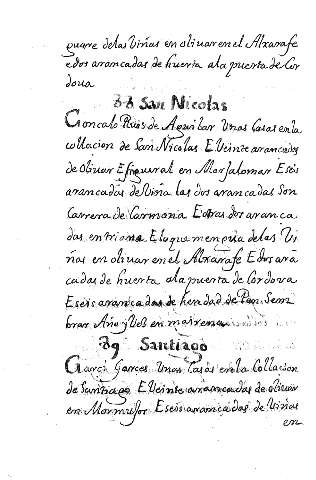 guare de las Viñas en olivar en el Alxarafe
e dos arancadas de huerta a la puerta de Cor
dova
38 San Nicolas
Goncalo Ruis de Aguilar Unas Casas en la
collacion de San Nicolas E Veinte arancadas
de olivar E figueral en Morjalomar E seis
arancadas de Viña las dos arancadas son
Carrera de Carmonia E otras dos aranca
das en triana E lo que mengua de las Vi
ñas en olivar en el Alxarafe E dos aran
cadas de huerta a la puerta de Cordova
E seis arancadas de heredad de Pan Sem
brar Año y Ves en mairena
39 Santiago
Garci Garces Unas Casas en la Collacion
de Santiago E Veinte arancadas de olivar
en Mormujor E seis arancadas de Viñas
en